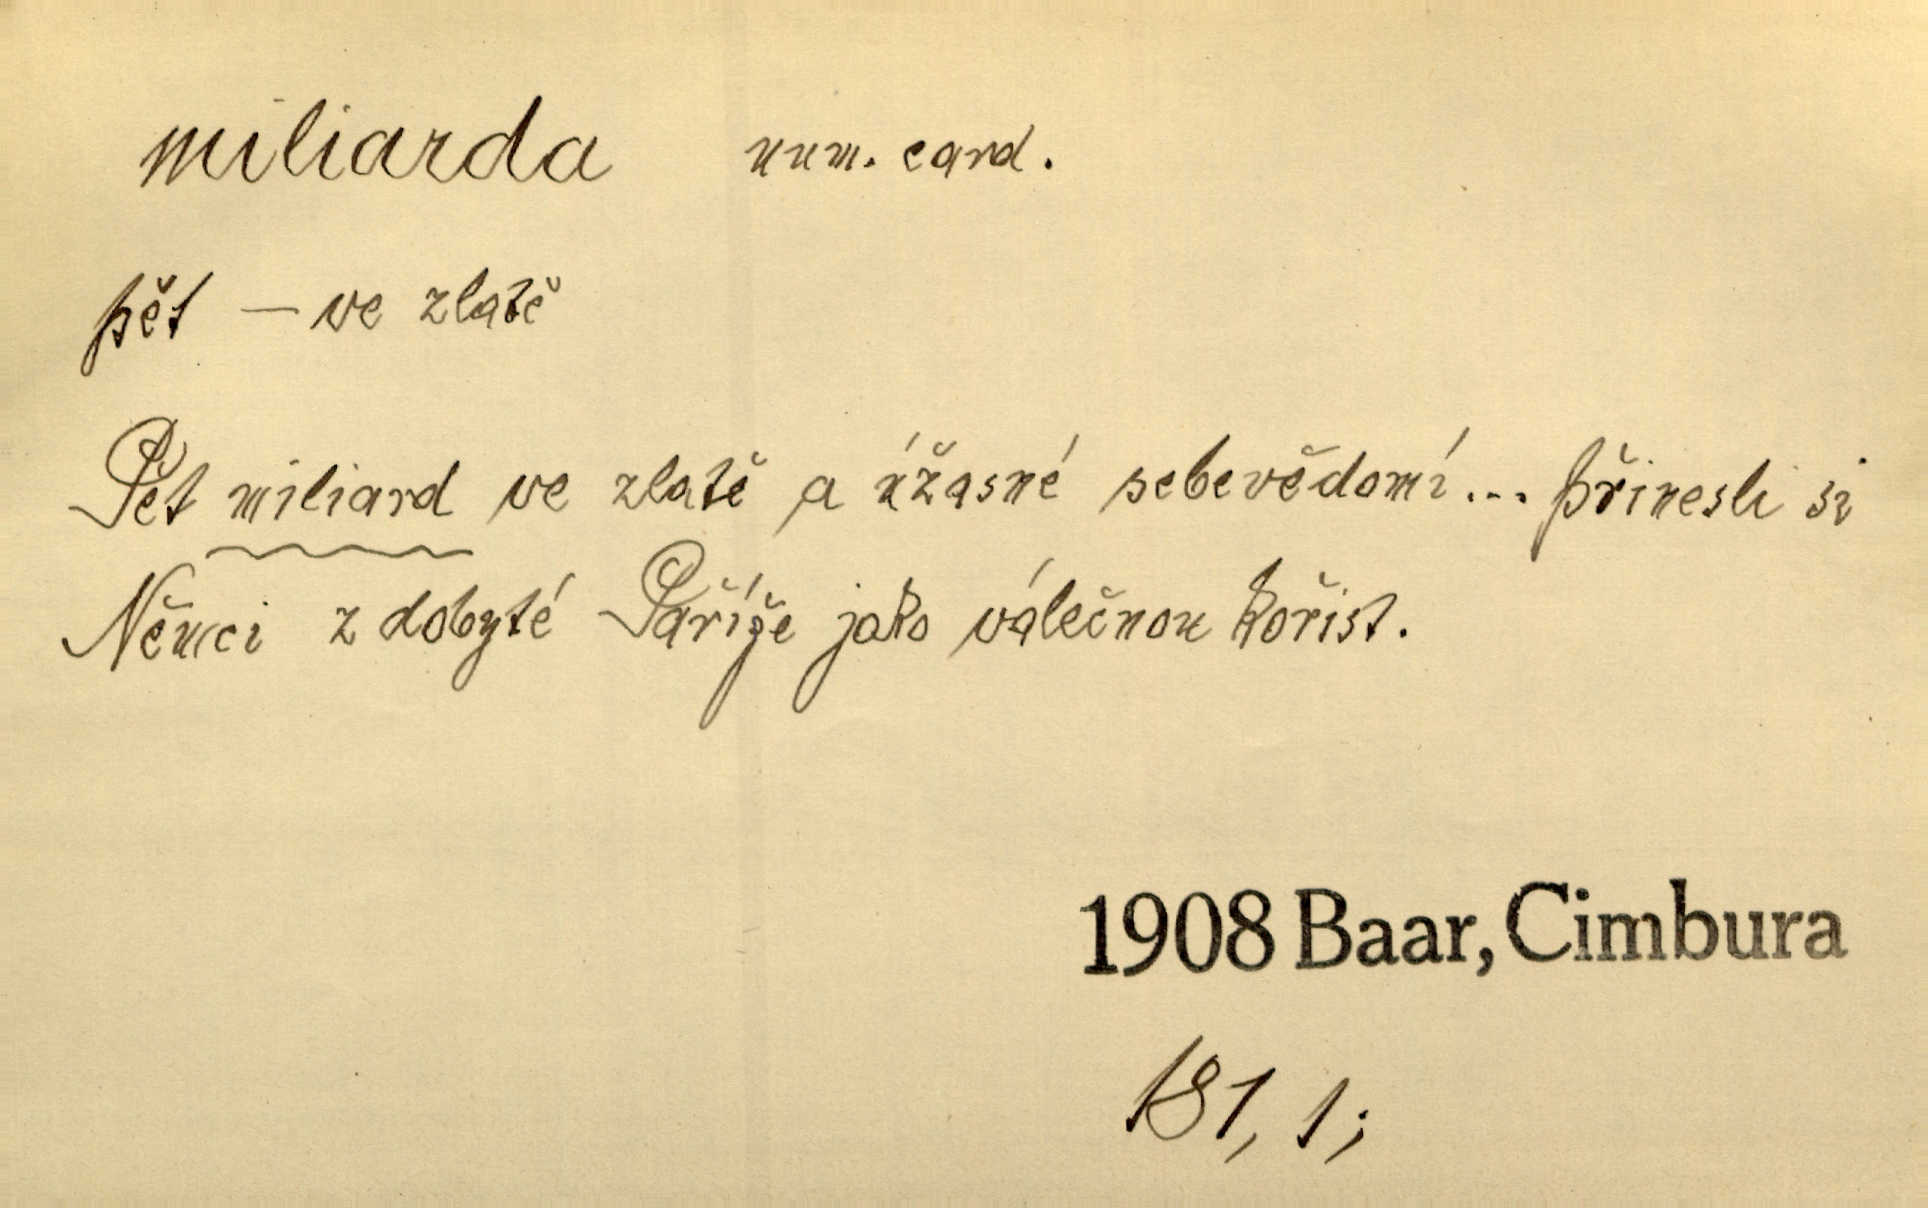 miliarda num. card.
pět — ve zlatě
Pět miliard ve zlatě a úžasné sebevědomí... přinesli si
Němci z dobyté Paříže jako válečnou kořist.
1908 Baar, Cimbura
181, 1;